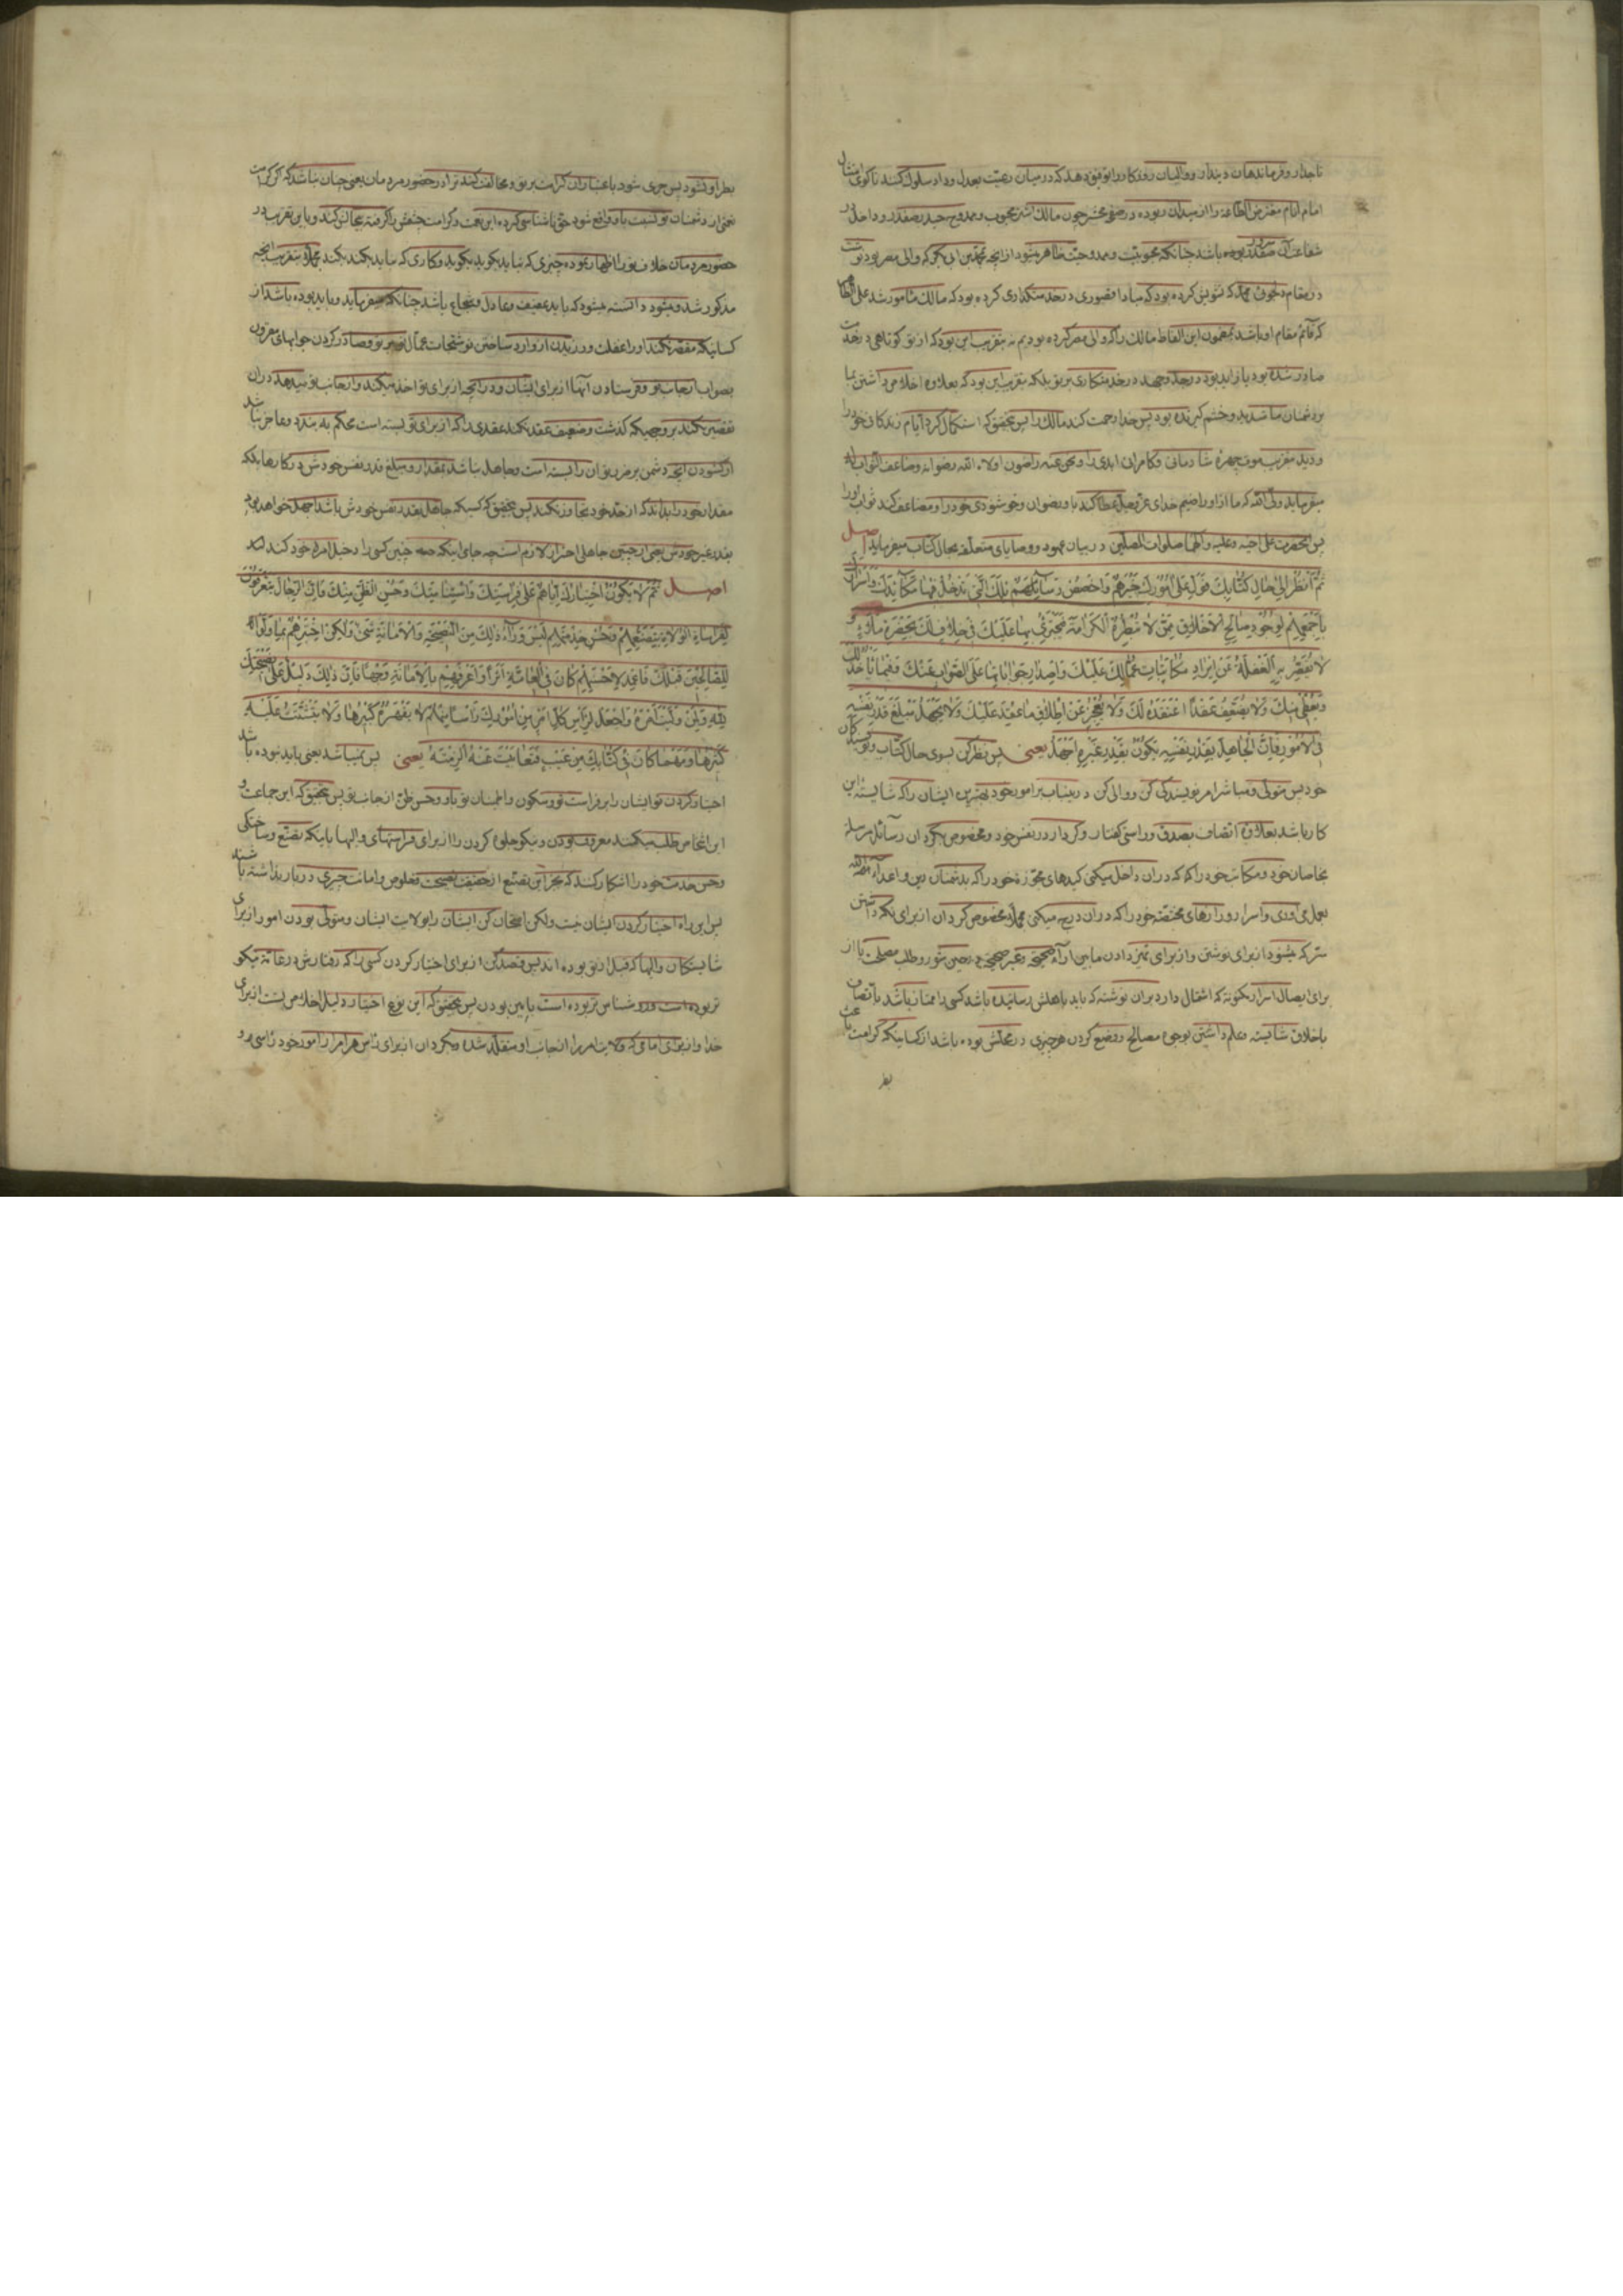 تاجدار و فرماندهان دیندار و والیان روزکار را توفیق دهد که در میان رعیّت بعدل و داد سلوک کنند تا کوی
امام انام مفترض الطاعة را از میدان ربوده در صف محشر چون مالک اشتر محبوب و ممدوح حیدر صفدر و داخل در
شفاعت آن بوده باشد چنانکه محبوبیّت و ممدوحیّت ظاهر میشود از آنچه محمّد بن ابی بکر که والی مصر بود نوشت
در مقام دلجوئی محمد که تشویش کرده بود که مبادا قصوری در خدمتکذاری کرده بود که مالک مأمور شد
که قائم مقام او باشد بمضمون این الفاظ مالک را که والی مصر کرده بودیم نه بتقریب این بود که از تو کوتاهی در خدمت
صادر شده بود یا زاید بود در جد و جهد در خدمتکاری بر تو بلکه بتقریب این بود که بعلاوه اخلاص داشتن بما
بر دشمنان ما شدید و خشم کیرنده بود پس خدا رحمت کند مالک را پس بتحقیق که استکمال کرد ایام زندکانی خود را
و دید بتقریب موت چهرهٔ شادمانی و کامرانی ابدی را و نحن عنه راضون اولاه الله رضوانه و ضاعف الثواب له
میفرماید ولی الله که ما از او راضیم خدای عزّ و جلّ عطا کند باو رضوان و خوشنودی خود را و مضاعف کند ثواب او را
پس انحضرت علی اخیه و علیه و الهما صلوات المصلین در بیان عهود و وصایای متعلقه بحال کتاب میفرماید اصل
ثُمَّ انْظُرْ اِلیٰ حَالِ کُتَّابِکَ فَوَلِّ عَلیٰ اُمُوْرِکَ خَیْرَهُمْ وَاخْصُصْ رَسَائِلَکَ الَّتِیْ تُدْخِلُ فِیْهَا مَکَائِدَکَ وَ اَسْرَارَکَ
بِاَجْمَعِهِمْ لِوُجُوْدِ صَالِحِ الْاَخْلَاقِ مِمَّنْ لَا تُبْطِرُهُ الْکَرَامَةُ فَیَجْتَرِئَ بِهَا عَلَیْکَ فِیْ خِلَافٍ لَکَ بِحَضْرَةِ مَلَاءٍ وَ
لَا تُقَصِّرُ بِهِ الْغَفْلَةُ عَنْ اِیْرَادِ مُکَاتَبَاتِ عُمَّالِکَ عَلَیْکَ وَ اِصْدَارِ جَوَابَاتِهَا عَلَی الصَّوَابِ عَنْکَ وَ فِیْمَا یَأْخُذُ لَکَ
وَ یُعْطِیْ مِنْکَ وَلَا یُضَعِّفُ عَقْدًا اعْتَقَدَهُ لَکَ وَلَا یَعْجِزُ عَنْ اِطْلَاقِ مَا عُقِدَ عَلَیْکَ وَلَا یَجْهَلُ مَبْلَغَ قَدْرِ نَفْسِهِ
فِی الْاُمُوْرِ فَاِنَّ الْجَاهِلَ بِقَدْرِ نَفْسِهِ یَکُوْنُ بِقَدْرِ غَیْرِهِ اَجْهَلَ یعنی پس نظر کن بسوی حال کتّاب و نویسندکان
خود پس متولی و مباشر امر نویسندکی کن و والی کن در بنیاب بر امور خود بهترین ایشان را که شایستهٔ این
کار باشد بعلاوه اتصاف بصدق و راستی کفتار و کردار در نفس خود و مخصوص بکردان رسائل مرسله
بخاصان خود و مکاتیب خود را که در ان داخل میکنی کیدهای مجوّزه خود را که بدشمنان دین و اعداء
بعمل می اوری و اسرار و رازهای مختصهٔ خود را که در ان درج میکنی مخصوص کردان از برای نکه داشتن
سرّ که میشود از برای نوشتن و از برای تمیز دادن مابین اراء صحیحه و غیر صحیحه در حین شور و طلب مصلحت یا از
برای ایصال اسرار بکونه که اشتمال دارد بران نوشته که باید باهلش رسانیده باشد کسی را ممتاز باشد باتصاف
باخلاق شایسته و علم داشتن بوجوه مصالح و وضع کردن هر چیزی در محلش بوده باشد از کسانیکه کرامت باعث
بطر
بطر او نشود پس جری شود باعتبار ان کرامت بر تو و مخالفت کند ترا در حضور مردمان یعنی چنان نباشد که
نعمتی از دشمنان تو نسبت باو واقع شود حق ناشناسی کرده این نعمت و کرامت خفض را کرفته بحال کند و باین تقریب در
حضور مردمان خلاف تو را اظهار نموده چیزی که نباید بکوید بکوید و کاری که نباید بکند بکند مجملا بتقریب انچه
مذکور شد و میشود دانسته میشود که باید عفیف و عادل و شجاع باشد چنانکه میفرماید و باید بوده باشد از
کسانیکه مقصّر نکند او را غفلت ورزیدن از وارد ساختن نوشتجات عمّال تو بر تو و صادر کردن جوابهای مقرون
بصواب از جانب تو و فرستادن آنها از برای ایشان و در انچه از برای تو اخذ میکند و از جانب تو میدهد در ان
تقصیر نکند بر وجهیکه کذشت و ضعیف عقد نکند عقدی را که از برای تو بسته است محکم به بندد و عاجز نباشد
از کشودن انچه دشمن بر ضرر تو ان را بسته است و جاهل نباشد بمقدار و مبلغ قدر نفس خودش در کارها بلکه
مقدار خود را بداند که از حدّ خود تجاوز نکند پس بتحقیق که کسیکه جاهل بقدر نفس خودش باشد اجهل خواهد بود
بقدر غیر خودش یعنی از چنین جاهلی احتراز لازم است چه جای اینکه چنین کسی را دخیل امراء خود کند
اصل ثُمَّ لَا یَکُوْنُ اخْتِیَارُکَ اِیَّاهُمْ عَلیٰ فِرَاسَتِکَ وَ اسْتِنَامَتِکَ وَ حُسْنِ الظَّنِّ مِنْکَ فَاِنَّ الرِّجَالَ یَتَعَرَّفُوْنَ
لِفِرَاسَاتِ الْوُلَاةِ بِتَصَنُّعِهِمْ وَ حُسْنِ خِدْمَتِهِمْ لَیْسَ وَرَاءَ ذٰلِکَ مِنَ النَّصِیْحَةِ وَ الْاَمَانَةِ شَیْءٌ وَلٰکِنِ اخْتَبِرْهُمْ بِمَا وُلُّوْا
لِلصَّالِحِیْنَ قَبْلَکَ فَاعْمِدْ لِاَحْسَنِهِمْ کَانَ فِی الْعَامَّةِ اَثَرًا وَ اَعْرَفِهِمْ بِالْاَمَانَةِ وَجْهًا فَاِنَّ ذٰلِکَ دَلِیْلٌ عَلیٰ نَصِیْحَتِکَ
لِلّٰهِ وَ لِمَنْ وُلِّیْتَ اَمْرَهُ وَ اجْعَلْ لِرَأْسِ کُلِّ اَمْرٍ مِنْ اُمُوْرِکَ رَأْسًا مِنْهُمْ لَا یَقْهَرُهُ کَبِیْرُهَا وَلَا یَتَشَتَّتُ عَلَیْهِ
کَثِیْرُهَا وَ مَهْمَا کَانَ فِیْ کُتَّابِکَ مِنْ عَیْبٍ فَتَغَابَیْتَ عَنْهُ اُلْزِمْتَهُ یعنی پس نمیباشد یعنی باید نبوده باشد
اختیار کردن تو ایشان را بر فراست تو و سکون و اطمینان تو باو و حسن ظنّ از جانب تو پس بتحقیق که این جماعت و
این اشخاص طلب میکنند معروف بودن و نیکو جلوه کردن را از برای فراستهای والیها باینکه بتصنّع و ساختکی
و حسن خدمت خود را اشکار کنند که بجز این تصنّع از حقیقت نصیحت و خلوص و امانت چیزی در بار نداشته باشند
پس این راه اختیار کردن ایشان نیست ولکن امتحان کن ایشان را بولایت ایشان و متولّی بودن امور از برای
شایستکان والیها که قبل از تو بوده اند پس قصد کن از برای اختیار کردن کسی را که رفتارش در عامّة نیکو
تر بوده است و رو شناس تر بوده است بامین بودن پس بتحقیق که این نوع اختیار دلیل اخلاص تست از برای
خدا و از برای امامی که ولایت امر را از جانب او متقلّد شدهٔ و بکردان از برای رأس هر امر از امور خود رأسی و